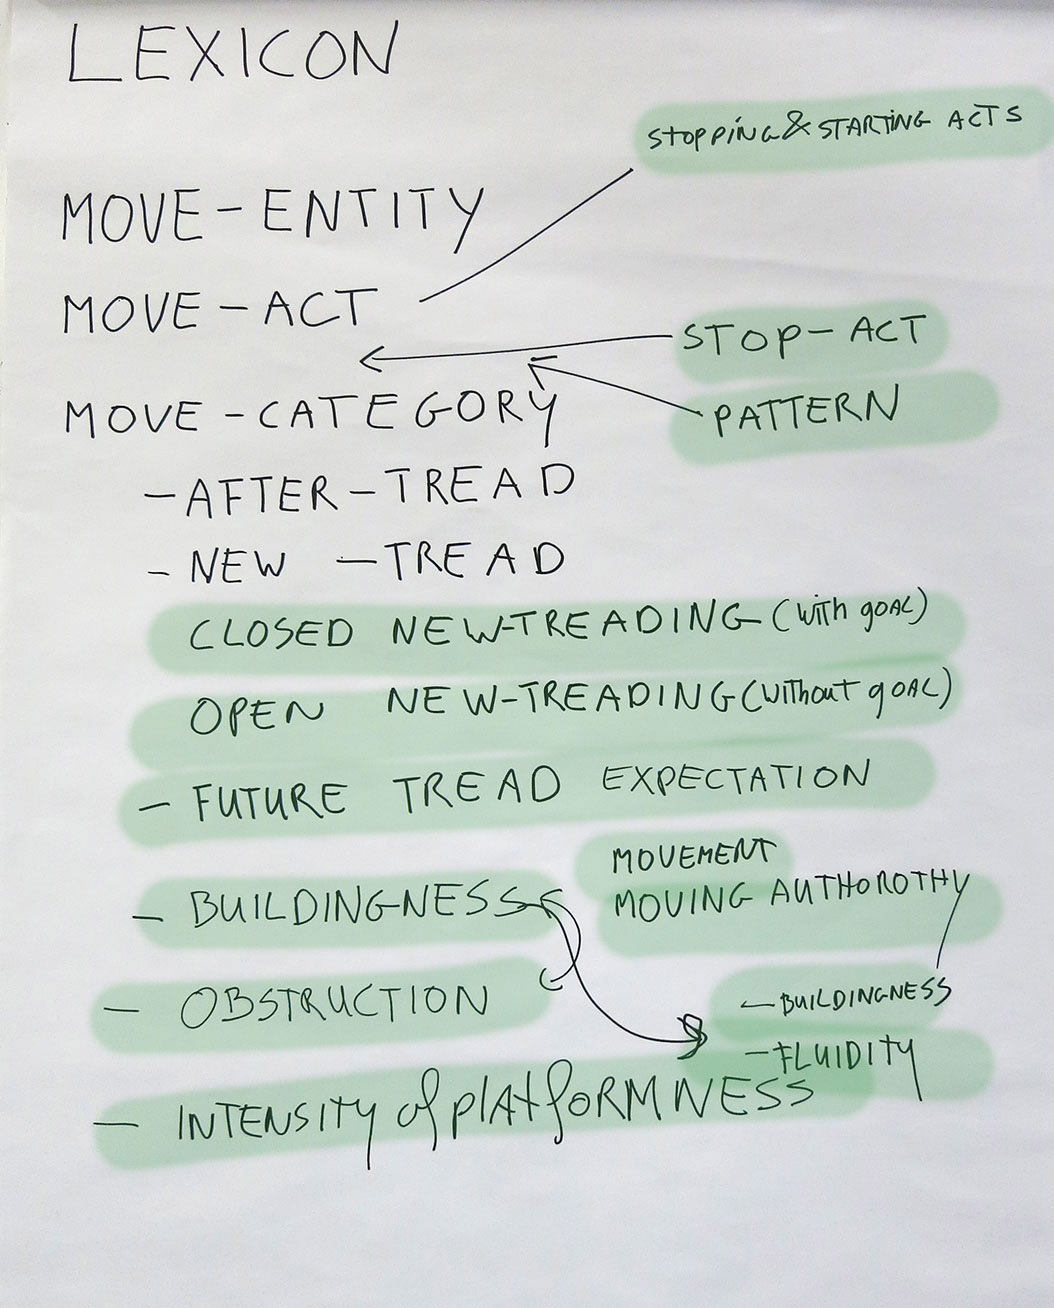 LEXICON
STOPPING & STARTING ACTS
MOVE-ENTITY
MOVE-ACT
STOP-ACT
PATTERN
MOVE-CATEGORY
-AFTER-TREAD
-NEW -TREAD
CLOSED NEW-TREADING (with gOAL)
OPEN NEW-TREADING (without gOAL)
- FUTURE TREAD EXPECTATION
MOVEMENT
MOVING AUTHOROTHY
- BUILDINGNESS
- OBSTRUCTION
- BUILDINGNESS
- FLUIDITY
- INTENSITY of plAtfORMNESS